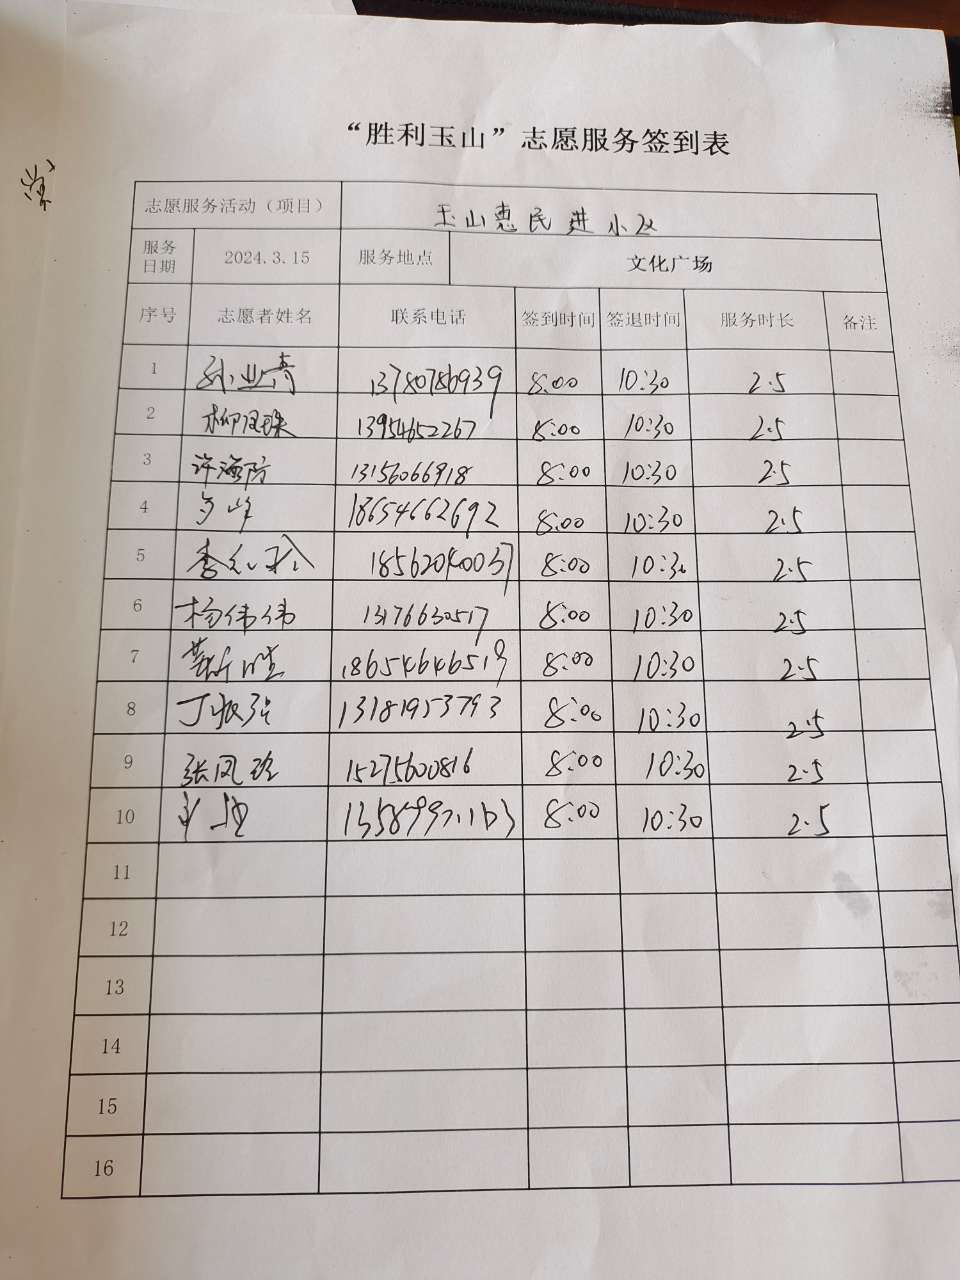 “胜利玉山”志愿服务签到表
志愿服务活动（项目） 玉山惠民进小区
服务日期 2024.3.15 服务地点 文化广场
序号 志愿者姓名 联系电话 签到时间 签退时间 服务时长 备注
1 孙业青 13780786939 8:00 10:30 2.5
2 柳凤珠 13954652267 8:00 10:30 2.5
3 许海防 13156066918 8:00 10:30 2.5
4 18654662692 8:00 10:30 2.5
5 李 18562040037 8:00 10:30 2.5
6 杨伟伟 13176630517 8:00 10:30 2.5
7 18654646519 8:00 10:30 2.5
8 丁 13181953793 8:00 10:30 2.5
9 张凤玲 15275600816 8:00 10:30 2.5
10 8:00 10:30 2.5
11
12
13
14
15
16